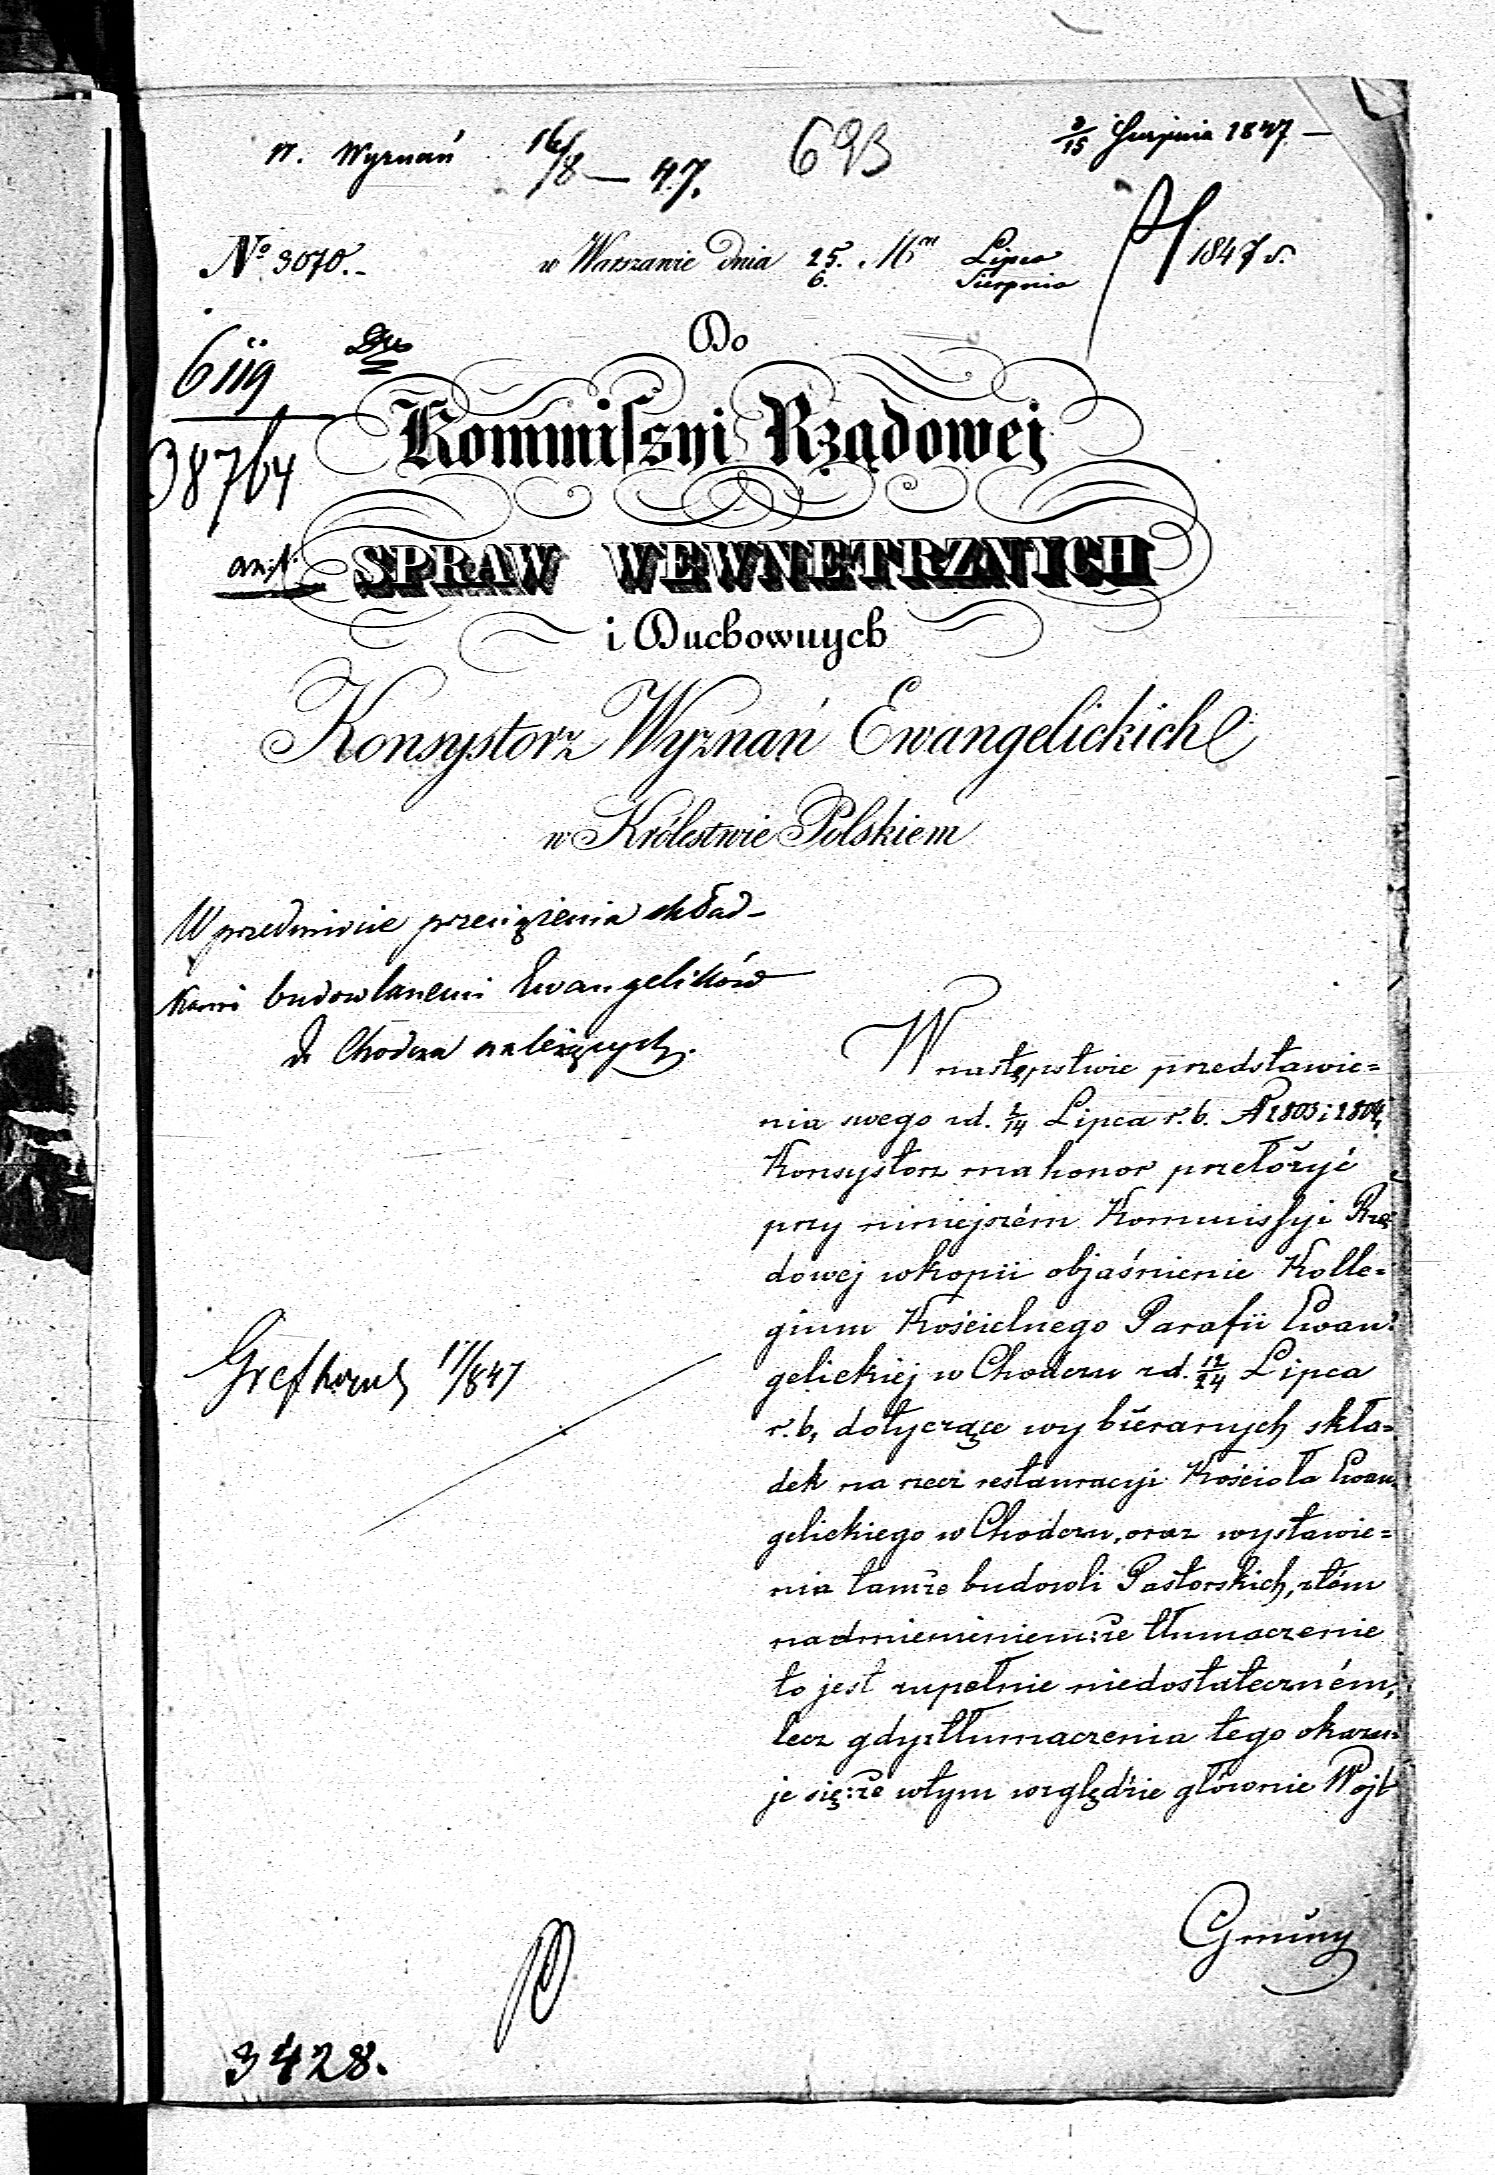 W. Wyznań 16/8 — 47. 693 3/15 Sierpnia 1847 —
No 3070.- w Warszawie dnia 25./6. Mca Lipca/Sierpnia 1847 r.
6119
Do
38764
Kommissyi Rządowej
SPRAW WEWNETRZNYCH
i Duchownych
Konsystorz Wyznań Ewangelickich
w Królestwie Polskiem
W przedmiocie przeciążenia skład-
kami budowlanemi Ewangelików
do Chodcza należących.
W następstwie przedstawie=
nia swego zd. 2/14 Lipca r. b. N 2803 i 2804,
Konsystorz ma honor przełożyć
przy niniejszém Kommissyi Rzą
dowej w kopii objaśnienie Kolle=
gium Kościelnego Parafii Ewan=
gelickiej w Chodczu zd. 12/24 Lipca
r. b, dotyczące wybieranych skła=
dek na rzecz restauracyi Kościoła Ewan=
gelickiego w Chodczu, oraz wystawie=
nia tamże budowli Pastorskich, z tém
nadmienieniem: że tłumaczenie
to jest zupełnie niedostateczném,
lecz gdy z tłumaczenia tego okazu=
je się: że w tym względzie głównie Wójt
Gminy
17/847
3428.